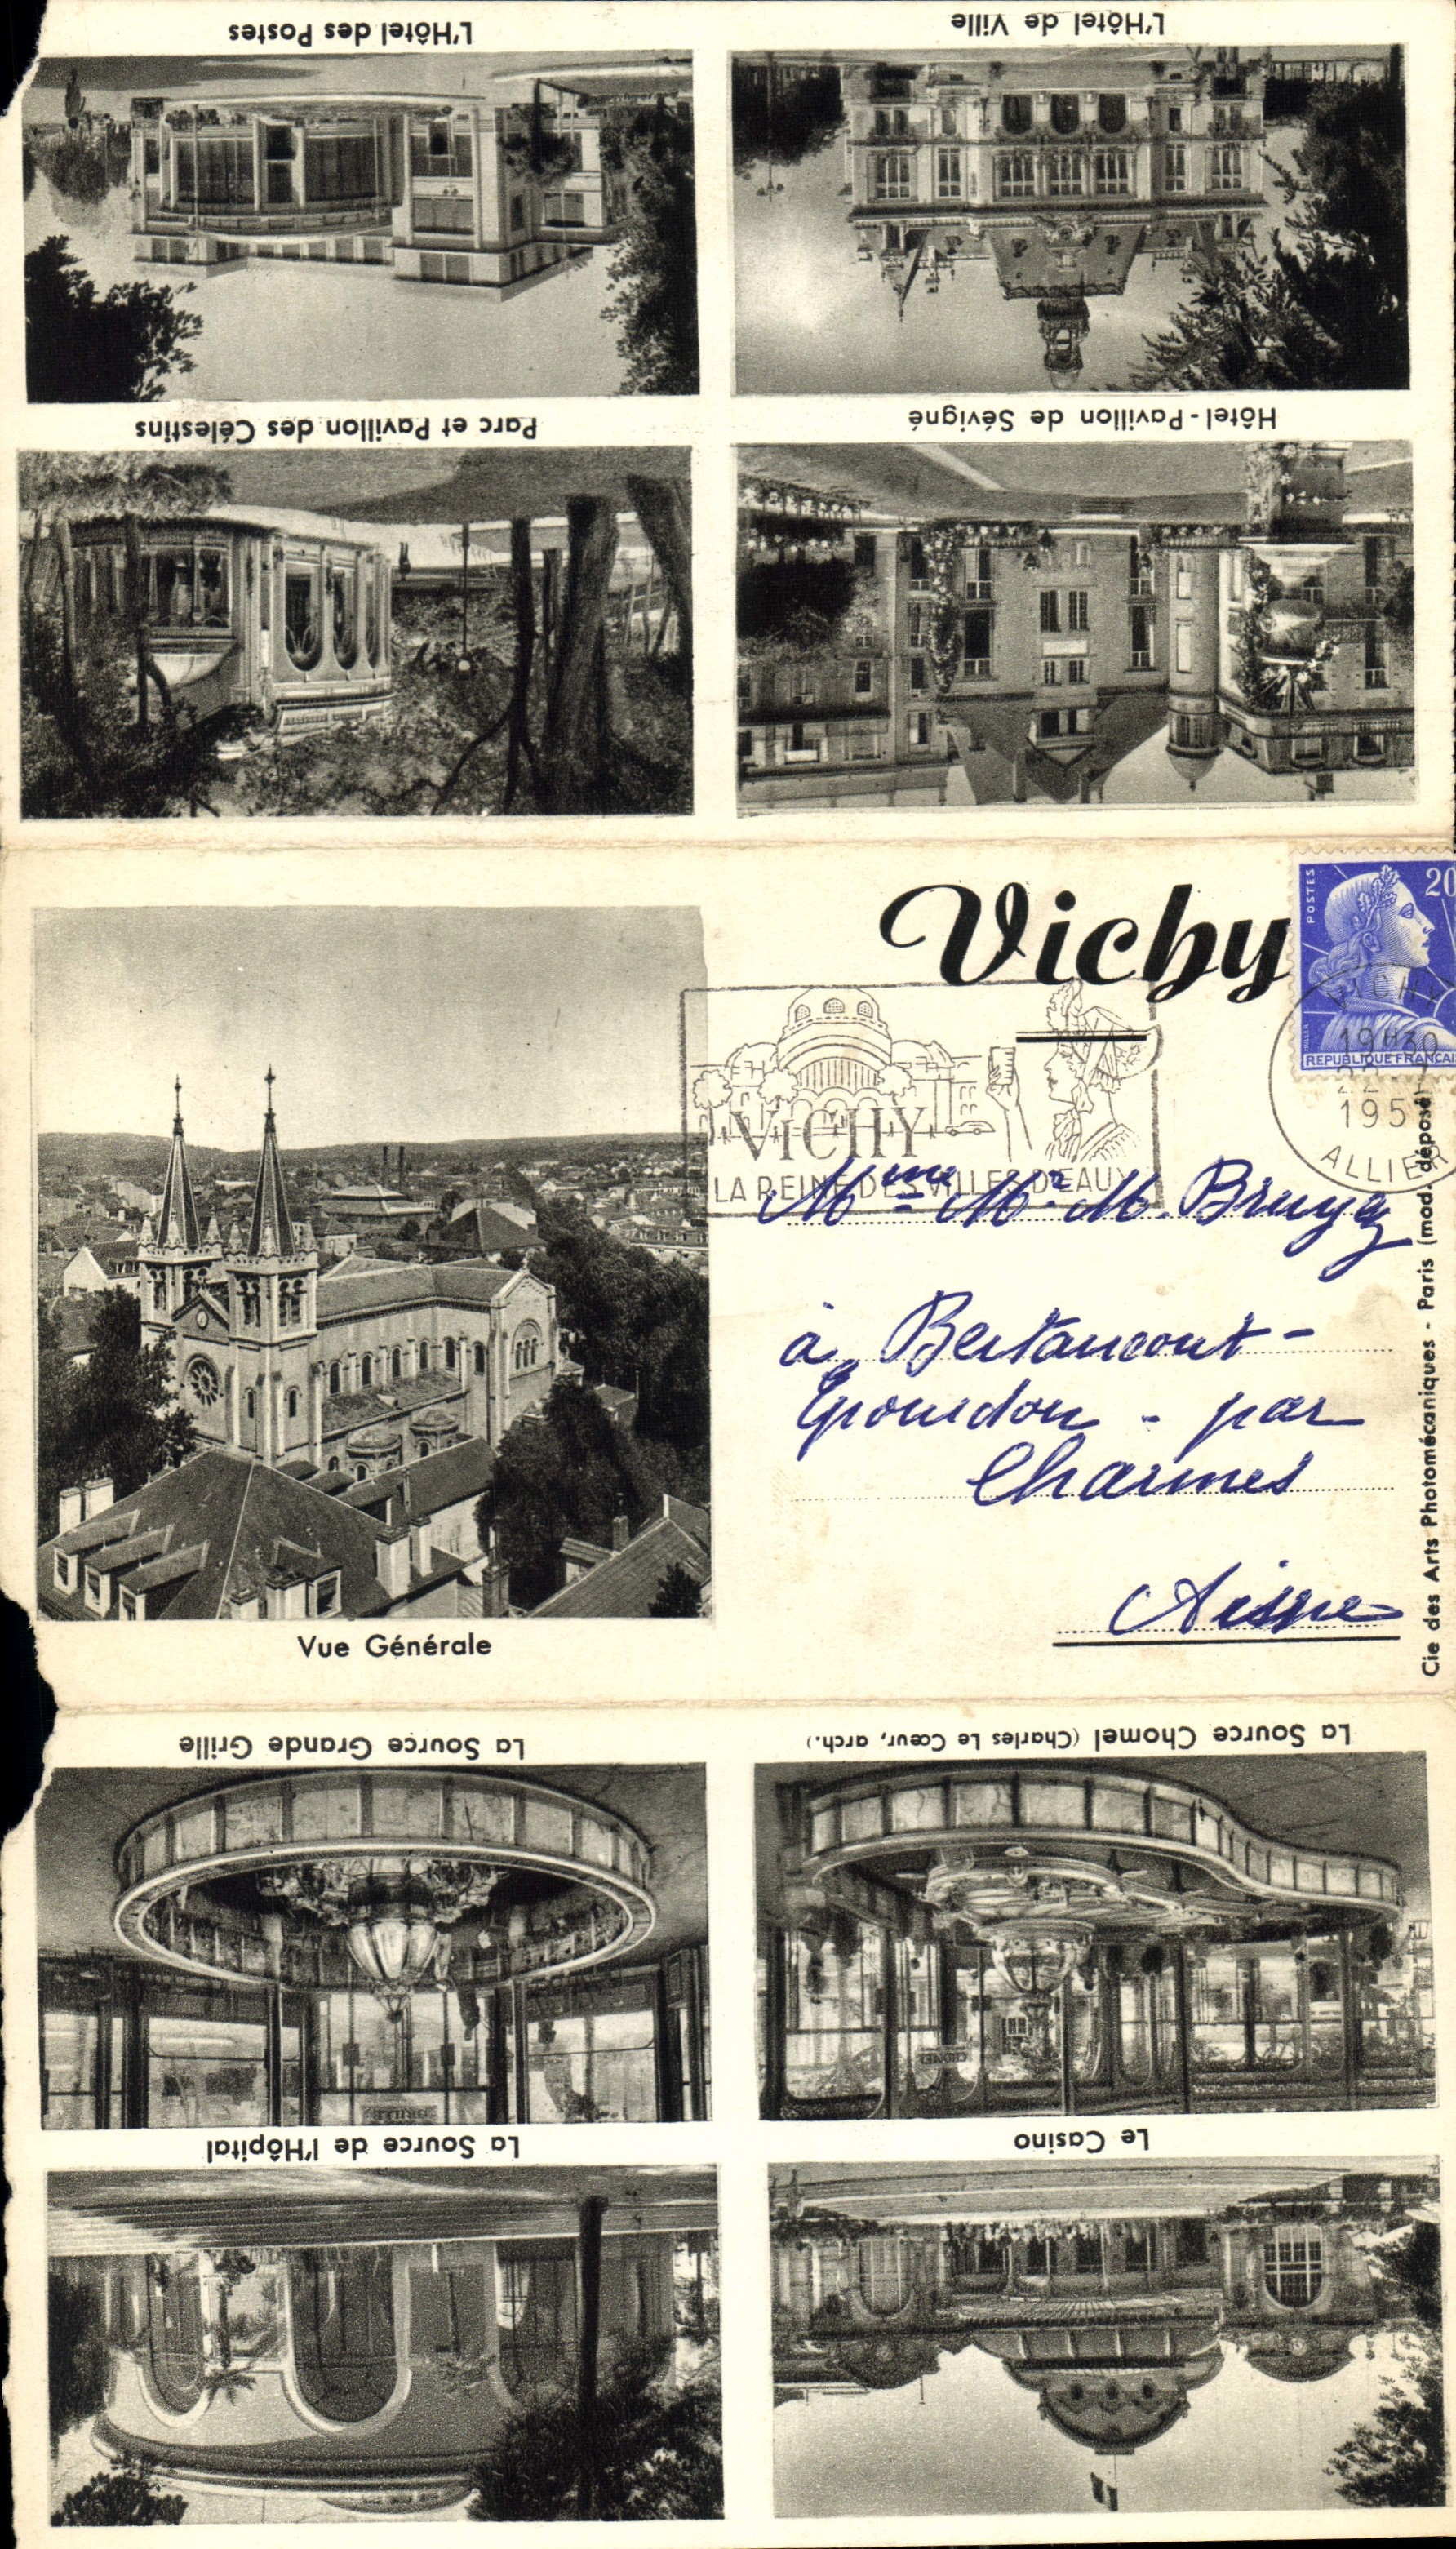 L'Hôtel des Postes
L'Hôtel de Ville
Parc et Pavillon des Célestins
Hôtel-Pavillon de Sévigné
Vichy
POSTES
20
MULLER
REPUBLIQUE FRANCAI
VICHY
19H30
22
195
ALLIER
VICHY
LA REINE DES VILLES D'EAUX
Mme Mr M. Bruyez
à Bertaucourt-
Epourdon - par
Charmes
Aisne
Cie des Arts Photomécaniques - Paris (mod. déposé)
Vue Générale
La Source Grande Grille
La Source Chomel (Charles Le Cœur, arch.)
CHOMEL
La Source de l'Hôpital
Le Casino